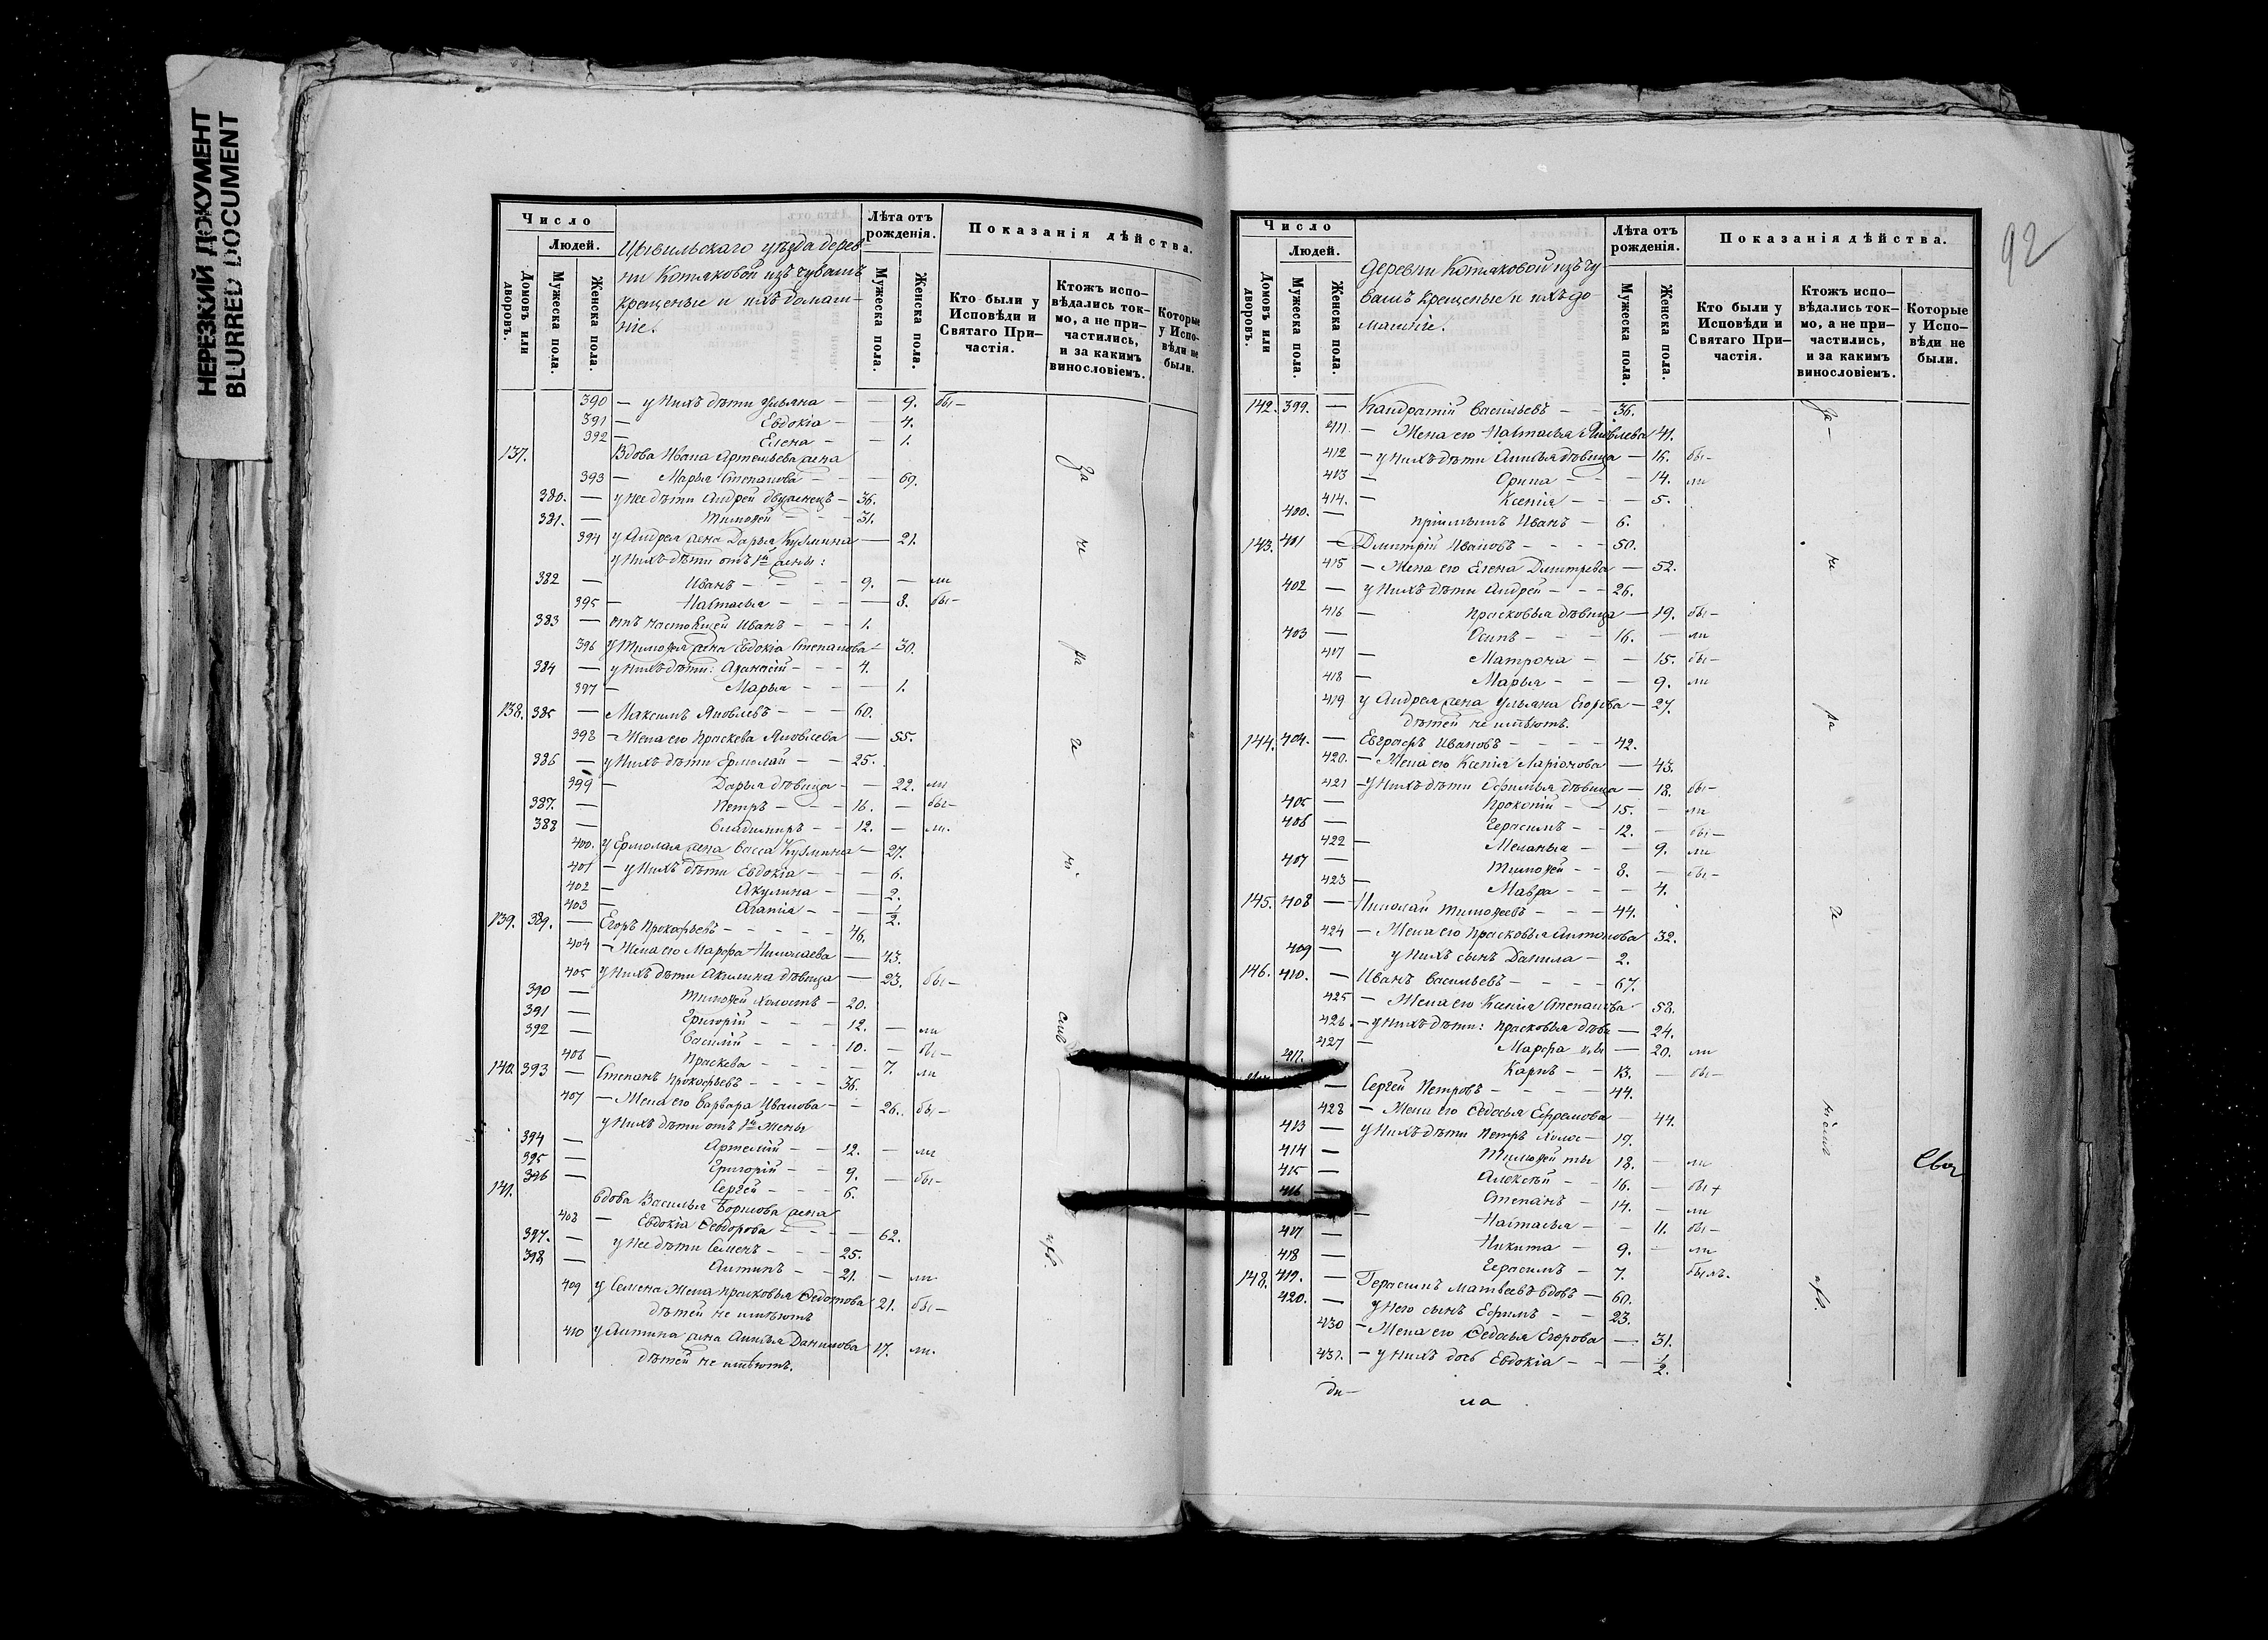 НЕРЕЗКИЙ ДОКУМЕНТ
BLURRED DOCUMENT
Число
Людей.
Домовъ или дворовъ.
Мужеска пола.
Женска пола.
Цивильскаго уѣзда дерев
ни Котяковой изъ чувашъ
крещеные и ихъ домаш-
ніе.
Лѣта отъ рожденія.
Мужеска пола.
Женска пола.
Показанія дѣйства.
Кто были у Исповѣди и Святаго При–частія.
Ктожъ испо–вѣдались ток–мо, а не при–частились, и за какимъ винословіемъ.
Которые у Испо–вѣди не были.
390 — у нихъ дѣти Ульяна — — 9. бы—
391 — Евдокіа — — 4.
392 — Елена — — 1.
137. Вдова Ивана Артемьева жена
393 — Марья Степанова — — 69.
380. — у нее дѣти Андрей двуженецъ — 36.
381. — Тимоѳей — — — 31.
394 у Андрея жена Дарья Кузмина — 21.
у нихъ дѣти отъ 1й жены:
382 — Иванъ — — — 9. — ли
395 — Настасья — — — 8. бы—
383 — отъ настоящей Иванъ — — 1.
396 у Тимоѳея жена Евдокіа Степанова — 30.
384 — у нихъ дѣти: Аѳанасій — — — 4.
397 — Марья — — — 1.
138. 385 — Максимъ Яковлевъ — — — 60.
398 — Жена его Праскева Яковлева — 55.
386 — у нихъ дѣти Ермолай — — 25.
399 — Дарья дѣвица — — 22. ли
387. — Петръ — — — 16. — бы—
388 — Владимиръ — — 12. — ли.
400. у Ермолая жена Васса Кузмина — 27.
401 — у нихъ дѣти Евдокіа — — — 6.
402 — Акулина — — 2.
403 — Агапіа — — — 1/2.
139. 389. — Егоръ Прокофьевъ — — — 46.
404 — Жена его Марфа Николаева — 43.
405 у нихъ дѣти Акилина дѣвица — 23. бы—
390 — Тимоѳей холостъ — 20.
391 — Григорій — — — 12. — ли
392 — Василій — — — 10. — бы—
406 — Праскева — — — 7. ли
140. 393 — Степанъ Прокофьевъ — — — 36.
407 — Жена его Варвара Иванова — — 26. бы—
у нихъ дѣти отъ 1й жены
394 — Артемій — — 12. — ли
395 — Григорій — — 9. — бы—
396 — Сергей — — — 6.
141. вдова Василья Борисова жена
408 — Евдокіа Ѳеодорова — — — 62.
397. — у нее дѣти Семенъ — — — 25.
398 — Антипъ — — 21. — ли
409 у Семена жена Прасковья Ѳедотова 21. бы—
дѣтей не имѣютъ
410 у Антипа жена Анисья Данилова 17. ли.
дѣтей не имѣютъ.
92
Число
Людей.
Домовъ или дворовъ.
Мужеска пола.
Женска пола.
деревни Котяковой изъ чу
вашъ крещеные и ихъ до
машніе.
Лѣта отъ рожденія.
Мужеска пола.
Женска пола.
Показанія дѣйства.
Кто были у Исповѣди и Святаго При–частія.
Ктожъ испо–вѣдались ток–мо, а не при–частились, и за какимъ винословіемъ.
Которые у Испо–вѣди не были.
142. 399. — Кандратій Васильевъ — — 36.
411. — Жена его Настасья Яковлева 41.
412 — у нихъ дѣти Анисья дѣвица — 16. бы—
413 — Орина — — — 14. ли
414. — Ксенія — — — 5.
400. — пріимышъ Иванъ — 6.
143. 401 — Димитрій Ивановъ — — — 50.
415 — Жена его Елена Дмитрева — 52.
402 — у нихъ дѣти Андрей — — — 26.
416 — Прасковья дѣвица — 19. бы—
403 — Осипъ — — — 16. — ли
417 — Матрона — — 15. бы—
418 — Марья — — — 9. ли
419 у Андрея жена Ульяна Егорова — 27.
дѣтей не имѣютъ.
144. 404. — Евграфъ Ивановъ — — — 42.
420. — Жена его Ксенія Ларіонова — 43.
421 — у нихъ дѣти Ефимья дѣвица — 18. бы—
405 — Прокопій — — 15. — ли
406 — Герасимъ — — 12. — бы—
422 — Меланья — — 9. ли
407 — Тимоѳей — — 8. — бы—
423 — Мавра — — — 4.
145. 408 — Николай Тимоѳеевъ — — — 44.
424 — Жена его Прасковья Антонова 32.
409 — у нихъ сынъ Данила — 2.
146. 410. — Иванъ Васильевъ — — — 67.
425 — Жена его Ксенія Степанова 58.
426. — у нихъ дѣти: Прасковья дѣв — 24.
427 — Марфа — 20. ли
411. Карпъ — — 13. — бы—
— Сергей Петровъ — — — 44.
428 — Жена его Ѳедосья Ефремова 44.
413 — у нихъ дѣти Петръ холос — 19.
414 — Тимоѳей ты 18. — ли
415 — Алексѣй — — 16. — бы+
416 Степанъ — 14. — ли
— Настасья — — 11. бы—
417 — Никита — 9. — ли
418 — Герасимъ — 7. былъ.
148. 419. — Герасимъ Матвеевъ вдовъ — 60.
420. — у него сынъ Ефимъ — — 23.
430 — Жена его Ѳедосья Егорова — 31.
431. — у нихъ дочь Евдокіа — — 1/2.
ди— на